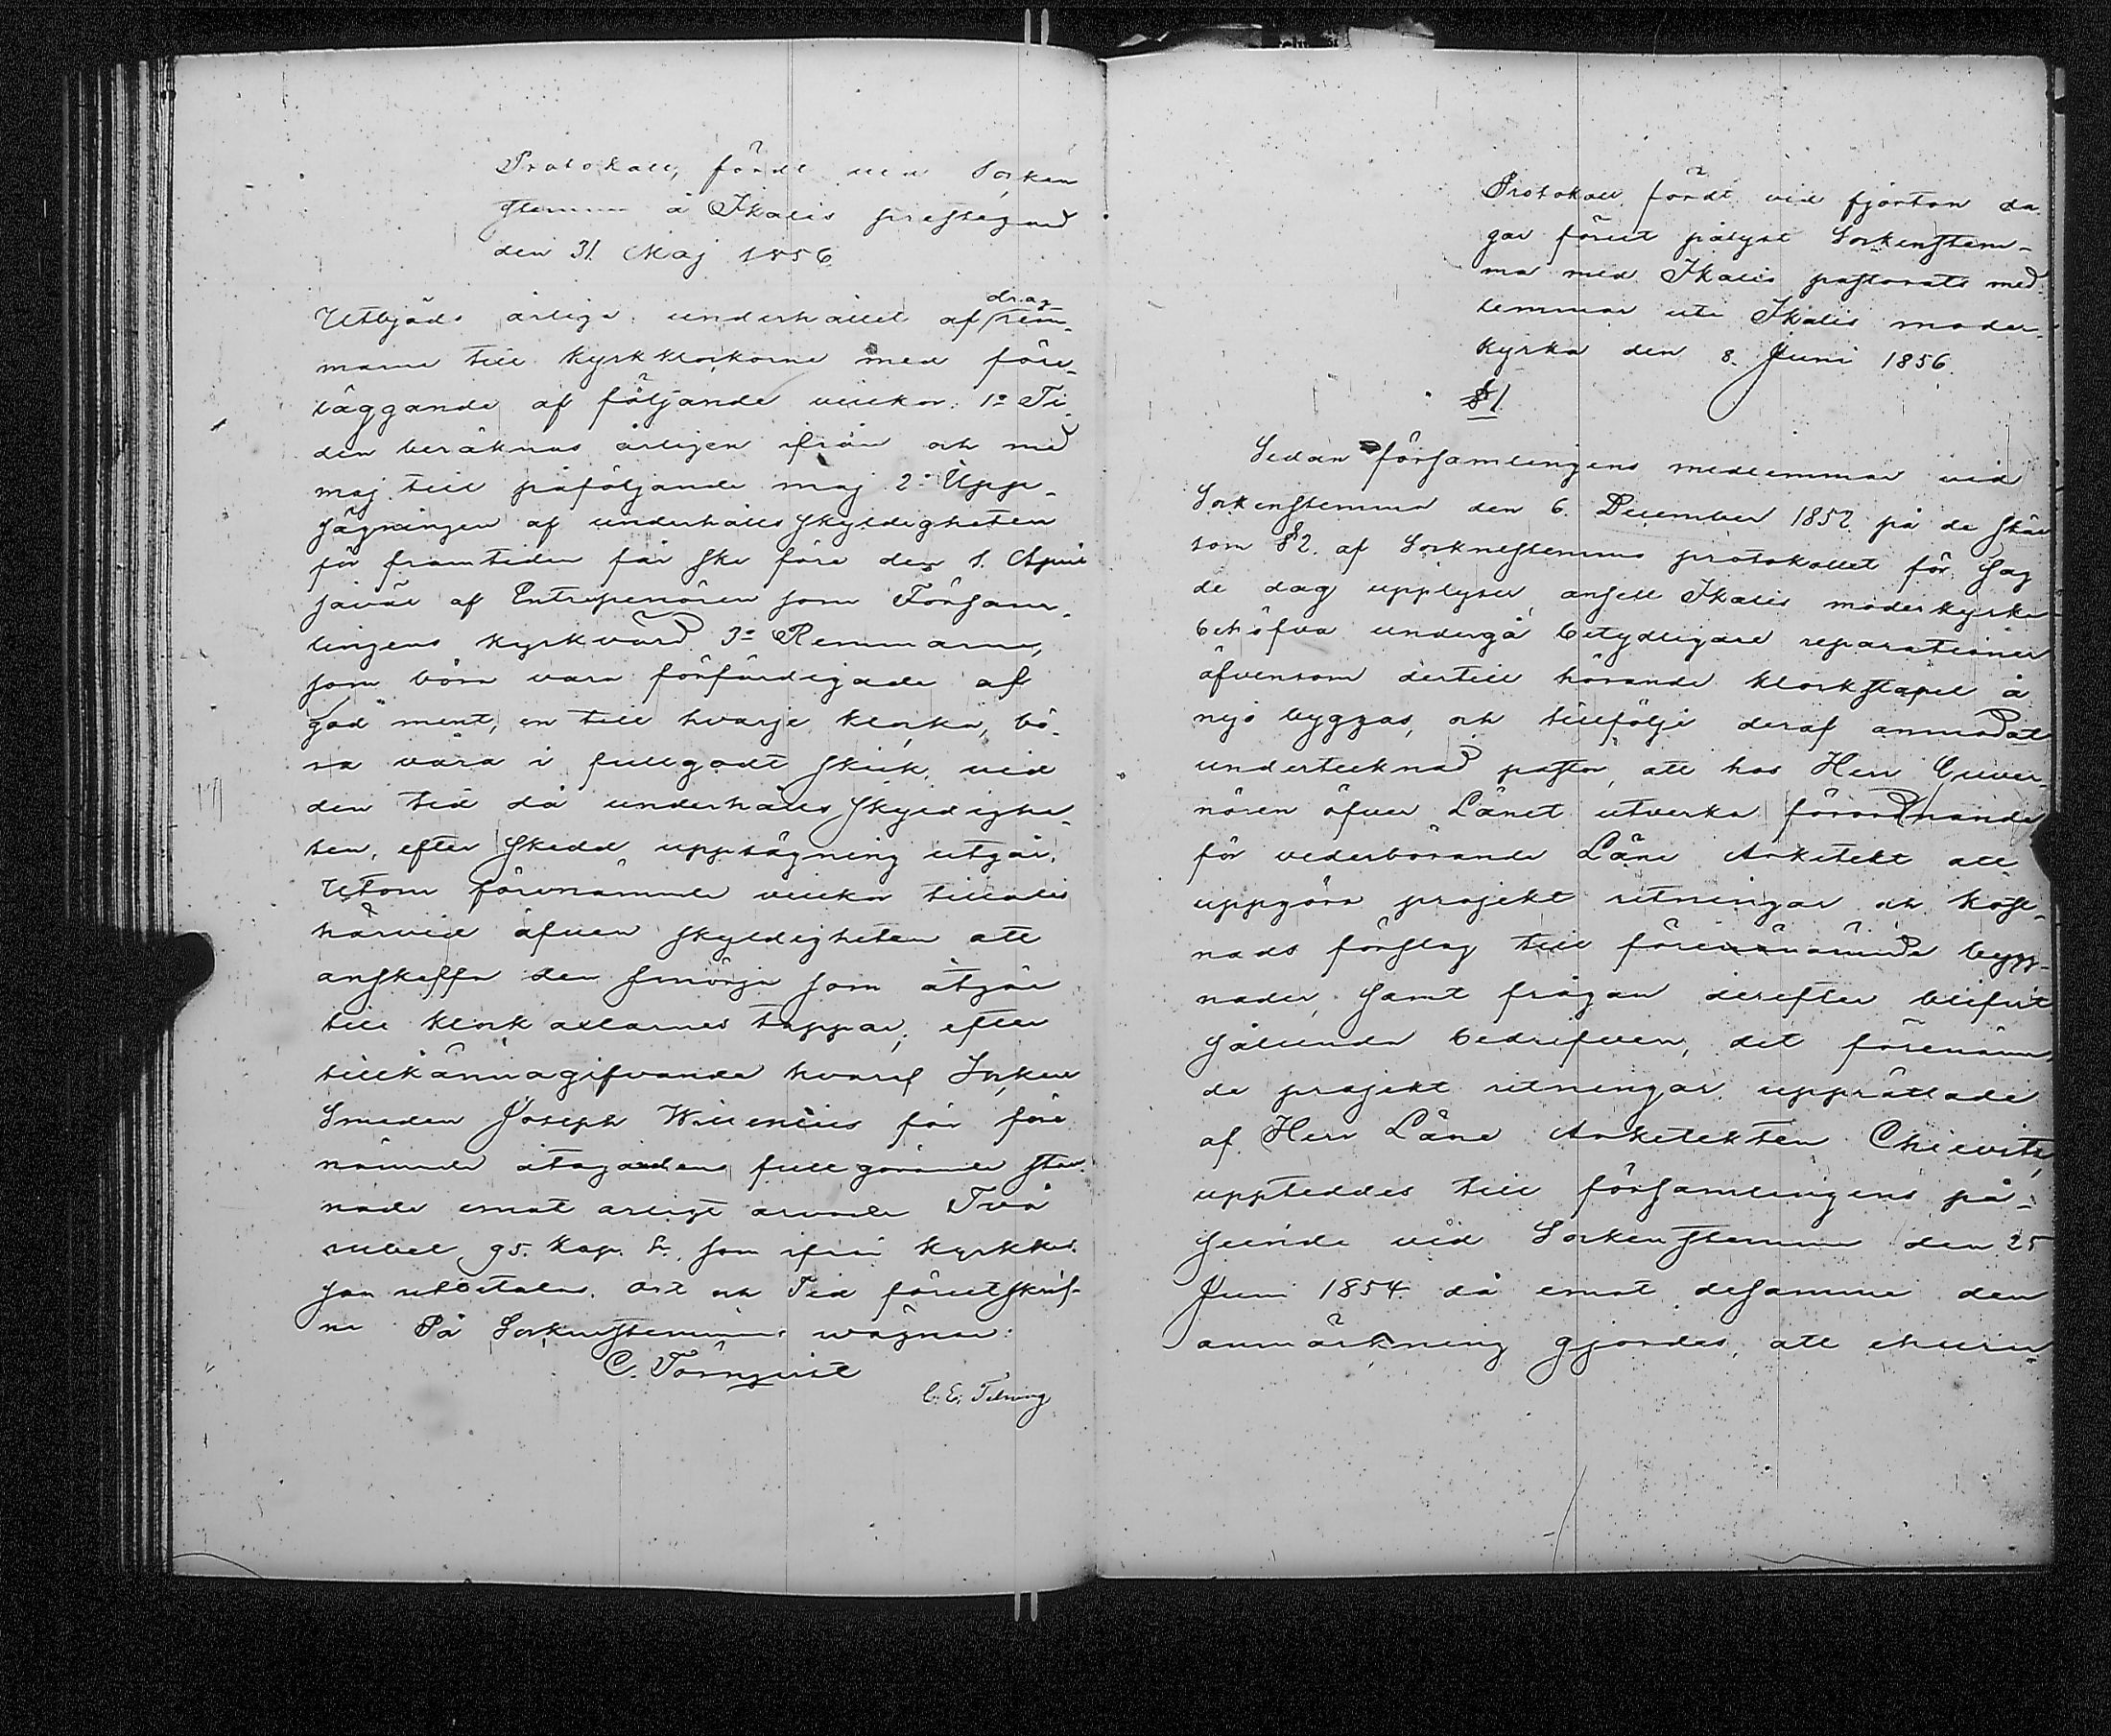 Protokoll, fördt vid Socken
stemma å Ikalis prestegård
den 31 Maj 1856
Utbjöds årliga underhållet af drag
rem-
marne till kyrkklockorne med före-
läggande af följande villkor: 1:o Ti-
den beräknas årligen ifrån och med
maj till påföljande maj 2:o Upp-
sägningen af underhålls skyldigheten
för framtiden får ske före den 1. April
såväl af Entreprenören som Försam-
lingens kyrkvärd 3:o Remmarne,
som böra vara förfärdigade af
god ment, en till hvarje klocka, bö-
ra vara i fullgodt skick, vid
den tid då underhålls skyldighe-
ten, efter skedd uppsägning utgår.
Utom förenämnde villkor tillades
härvid äfven skyldigheten att
anskaffa den smörja som åtgår
till klock axlarnes tappar; efter
tillkännagifvande hvaraf Socken
Smeden Joseph Willenius för före
nämnde åtagandens fullgörande stan-
nade emot årligt arvode Två
rubel 95. kop. Sr. som ifrån kyrkkas-
san utbetalas. Ort och Tid förutskrif-
ne På Sockenstemmans wägnar:
C. Törnqvist
C. E.
Protokoll fördt vid fjorton da-
gar förut pålyst Sockenstem-
ma med Ikalis pastorats med-
lemmar uti Ikalis moder-
kyrka den 8. Juni 1856.
§ 1
Sedan församlingens medlemmar vid
Sockenstemma den 6. December 1852 på de skäl
som § 2. af Socknestemmo protokollet för sag
de dag upplyser, ansett Ikalis moderkyrka
behöfva undergå betydligare reparationer
äfvensom dertill hörande klockstapel å
nyo byggas, och tillfölje deraf anmodat
undertecknad pastor, att hos Herr Guver-
nören öfver Länet utverka förordnande
för vederbörande Läns Arkitekt att
uppgöra projekt ritningar och kost-
nads förslag till förenämnde bygg-
nader, samt frågan derefter blifvit
sålunda bedrifven, det förenäm-
de projekt ritningar upprättade
af Herr Läns Arkitekten Chiewitz,
uppteddes till församlingens på-
seende vid Sockenstemma den 25
Juni 1854 då emot desamma den
anmärkning gjordes, att ehuru-